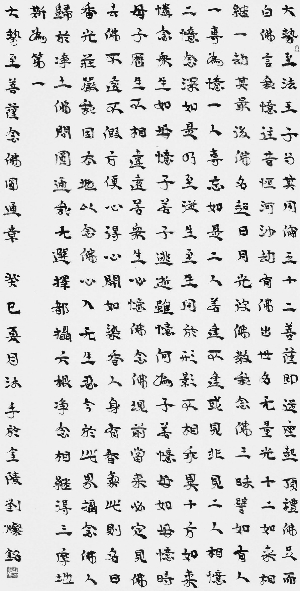 大勢至法王子与其同倫五十二菩薩即從座起頂禮佛足而
白佛言我憶往昔恒河沙劫有佛出世名无量光十二如來相
繼一劫其最後佛名超日月光彼佛教我念佛三昧譬如有人
一專為憶一人專忘如是二人若逢不逢或見非見二人相憶
二憶念深如是乃至從生至生同於形影不相乖異十方如來
憐念眾生如母憶子若子逃逝雖憶何為子若憶母如母憶時
母子歷生不相違遠若眾生心憶佛念佛現前當來必定見佛
去佛不遠不假方便自得心開如染香人身有香氣此則名曰
香光莊嚴我本因地以念佛心入无生忍今於此界攝念佛人
歸於淨土佛問圓通我无選擇都攝六根淨念相繼得三摩地
斯為第一
大勢至菩薩念佛圓通章 癸巳夏月沐手於金陵劉燦銘